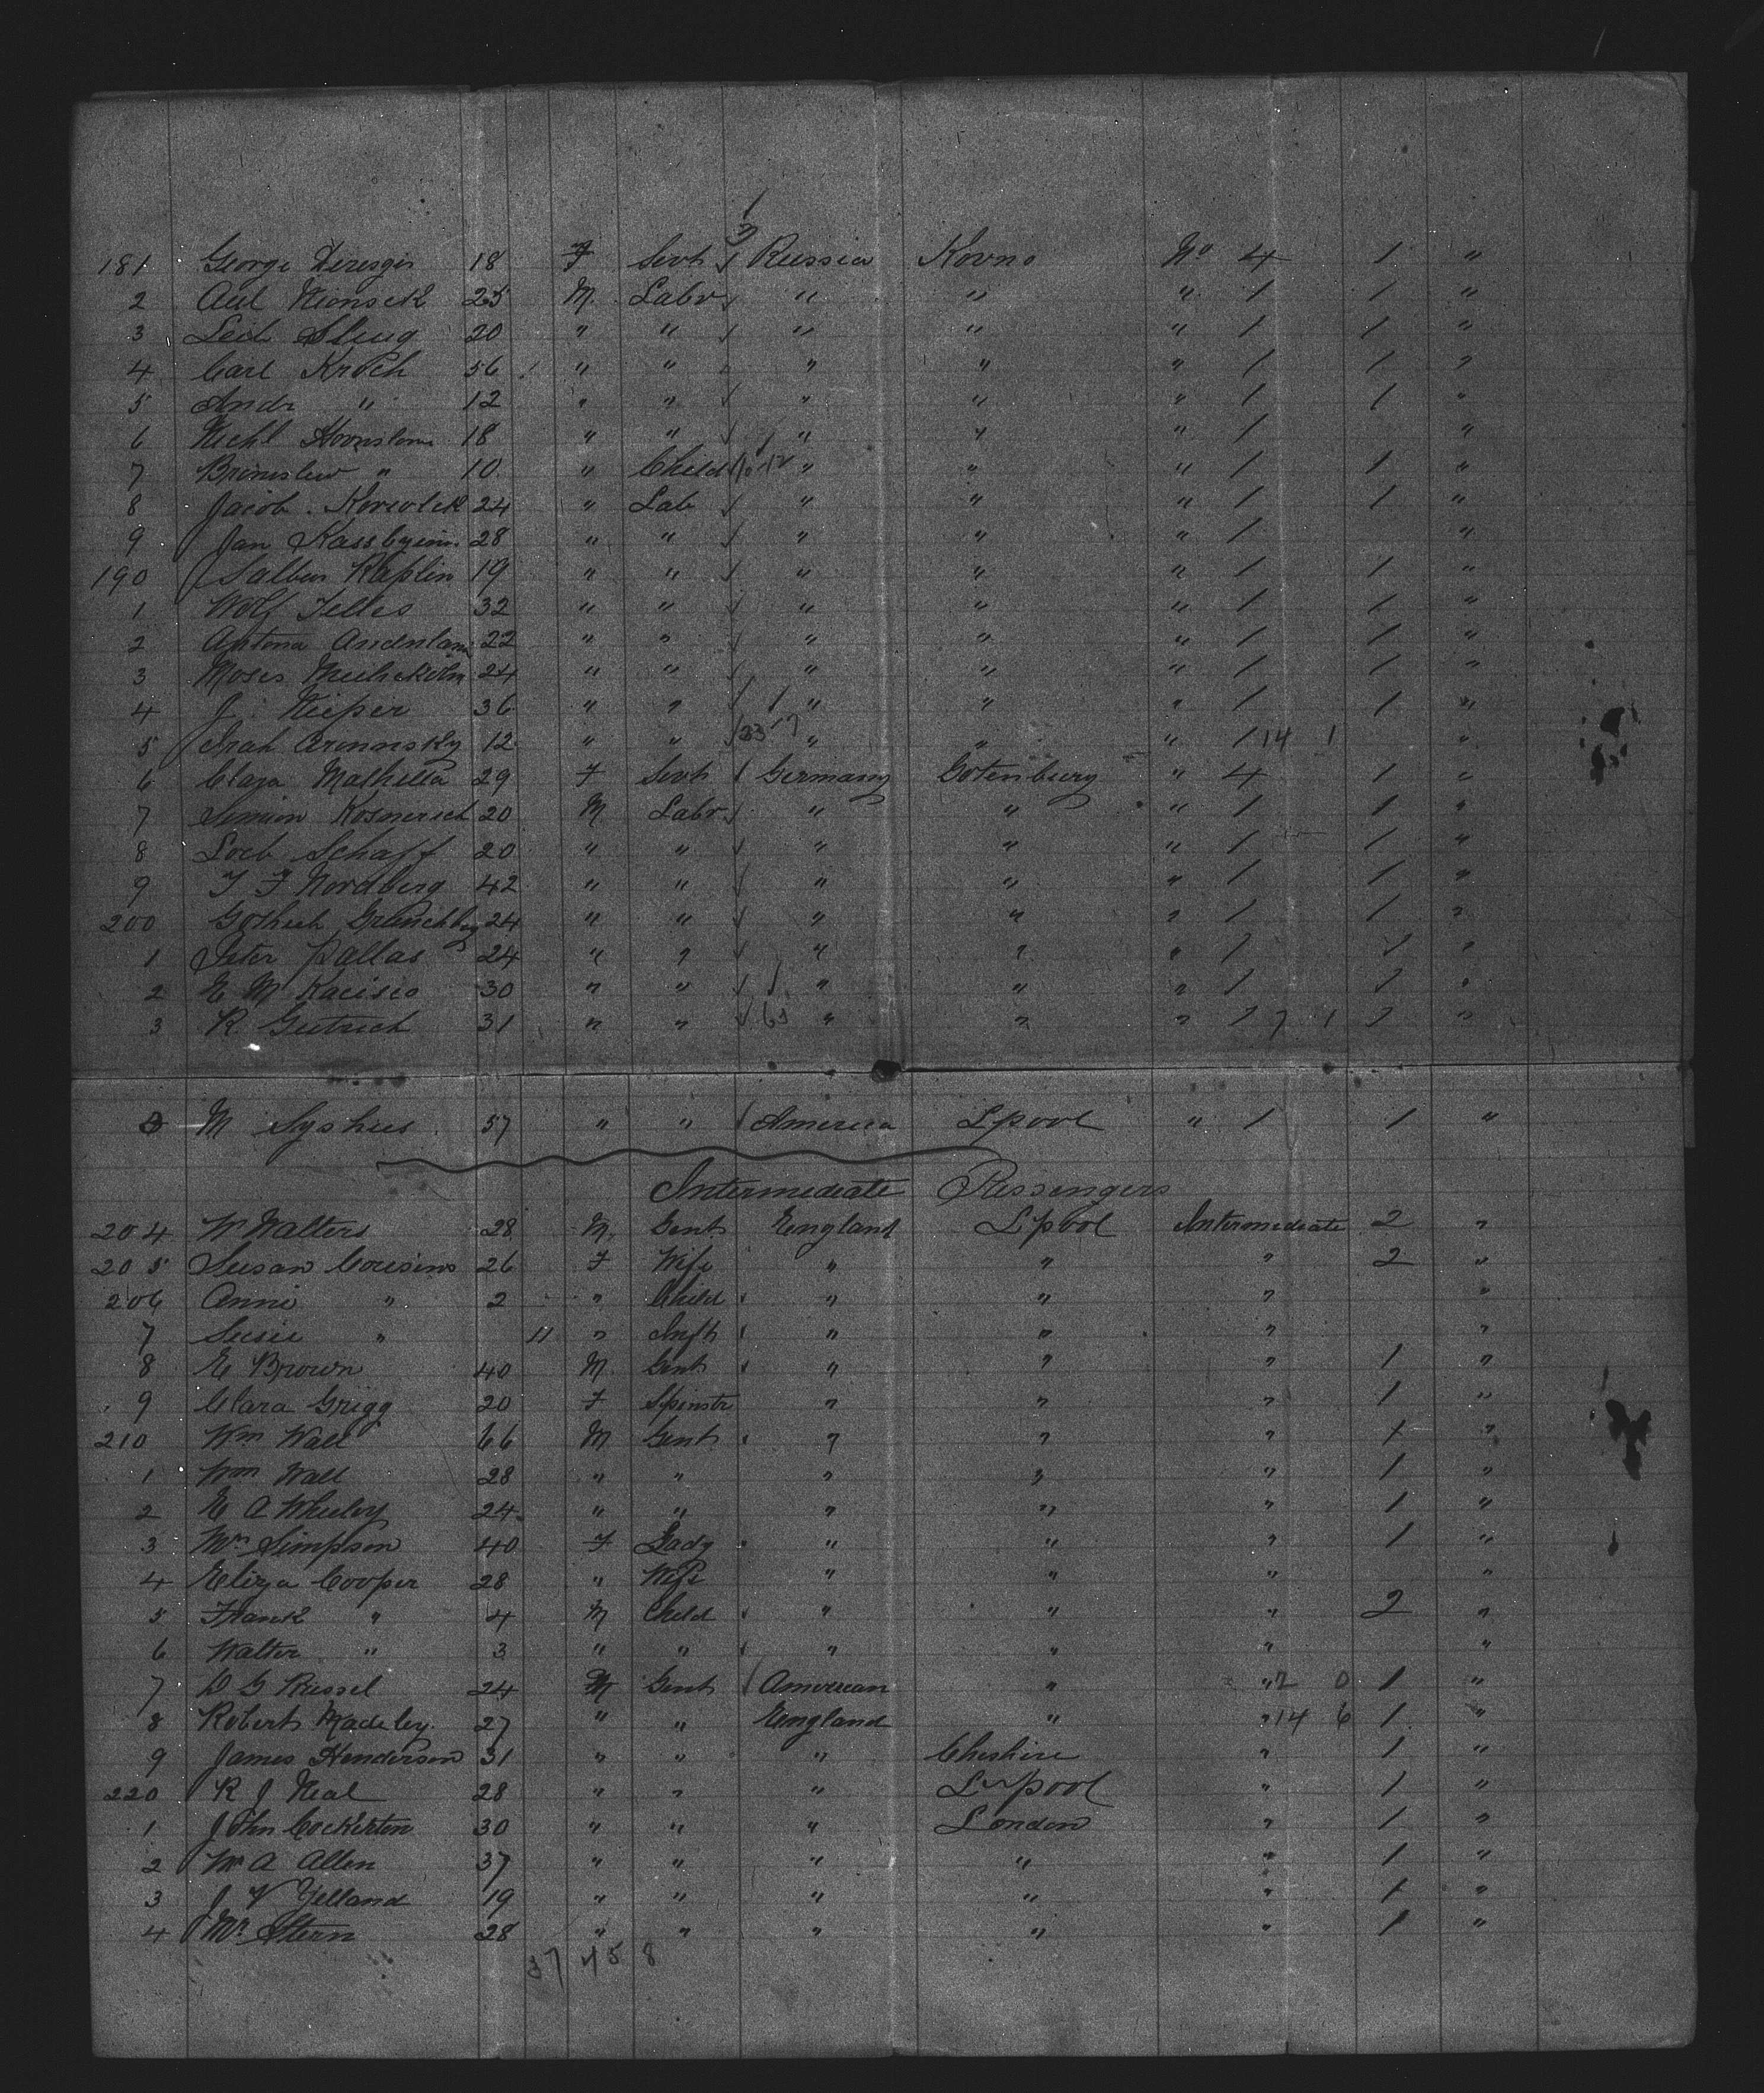 181 George Diresgis 18 F Servt Russia Kovno No 4 1 "
2 Aul Nionsek 25 M Labr " " " 1 1 "
3 Leib Slug 20 " " " " " 1 1 "
4 Carl Kroch 56 " " " " " 1 1 "
5 Andr " 12 " " " " " 1 1 "
6 18 " " " " " 1 "
7 " 10 " Child " " " 1 1 "
8 Jacob 24 " Lab " " " 1 1 "
9 Jan 28 " " " " " 1 "
190 Kaplin 19 " " " " " 1 1 "
1 Wolf Telles 32 " " " " " 1 1 "
2 Antona 22 " " " " " 1 1 "
3 Moses 24 " " " " " 1 1 "
4 J. Kieper 36 " " " " " 1 1 "
5 12 " " " " " 1 14 1 "
6 Clara Mathilla 29 F Servt Germany Gotenburg " 4 1 "
7 Simion 20 M Labr " " " 1 1 "
8 Loeb Schaff 20 " " " " " 1 1 "
9 T F Nordberg 42 " " " " " 1 1 "
200 24 " " " " " 1 1 "
1 Pallas 24 " " " " " 1 1 "
2 E M Kacisio 30 " " " " " 1 1 "
3 R. Gutrich 31 " " " " " 1 7 1 1 "
M Syshus 57 " " America Lpool " 1 1 "
Intermediate Passengers
204 W Walters 28 M Gent England Lpool Intermediate 2 "
205 Susan Cousins 26 F Wife " " " 2 "
206 Anni " 2 " Child " " " "
7 Susie " 11 " Inft " " " "
8 E Brown 40 M Gent " " " 1 "
9 Clara Grigg 20 F Spinstr " " " 1 "
210 Wm Wall 66 M Gent " " " 1 "
1 Wm Wall 28 " " " " " 1 "
2 E A Wheeley 24 " " " " " 1 "
3 Mrs Simpson 40 F Lady " " " 1 "
4 Eliza Cooper 28 " Wife " " " "
5 Frank " 4 M Child " " " 2 "
6 Walter " 3 " " " " " "
7 D G Russel 24 M Gent American " " 2 0 1 "
8 Robert Madeley 27 " " England " " 14 6 1 "
9 James Henderson 31 " " " Cheshire " 1 "
220 R J Neal 28 " " " Lpool " 1 "
1 John Cockerton 30 " " " London " 1 "
2 Mr A Allen 37 " " " " " 1 "
3 J V Yelland 19 " " " " " 1 "
4 Mr Stern 28 " " " " " 1 "
37 45 8